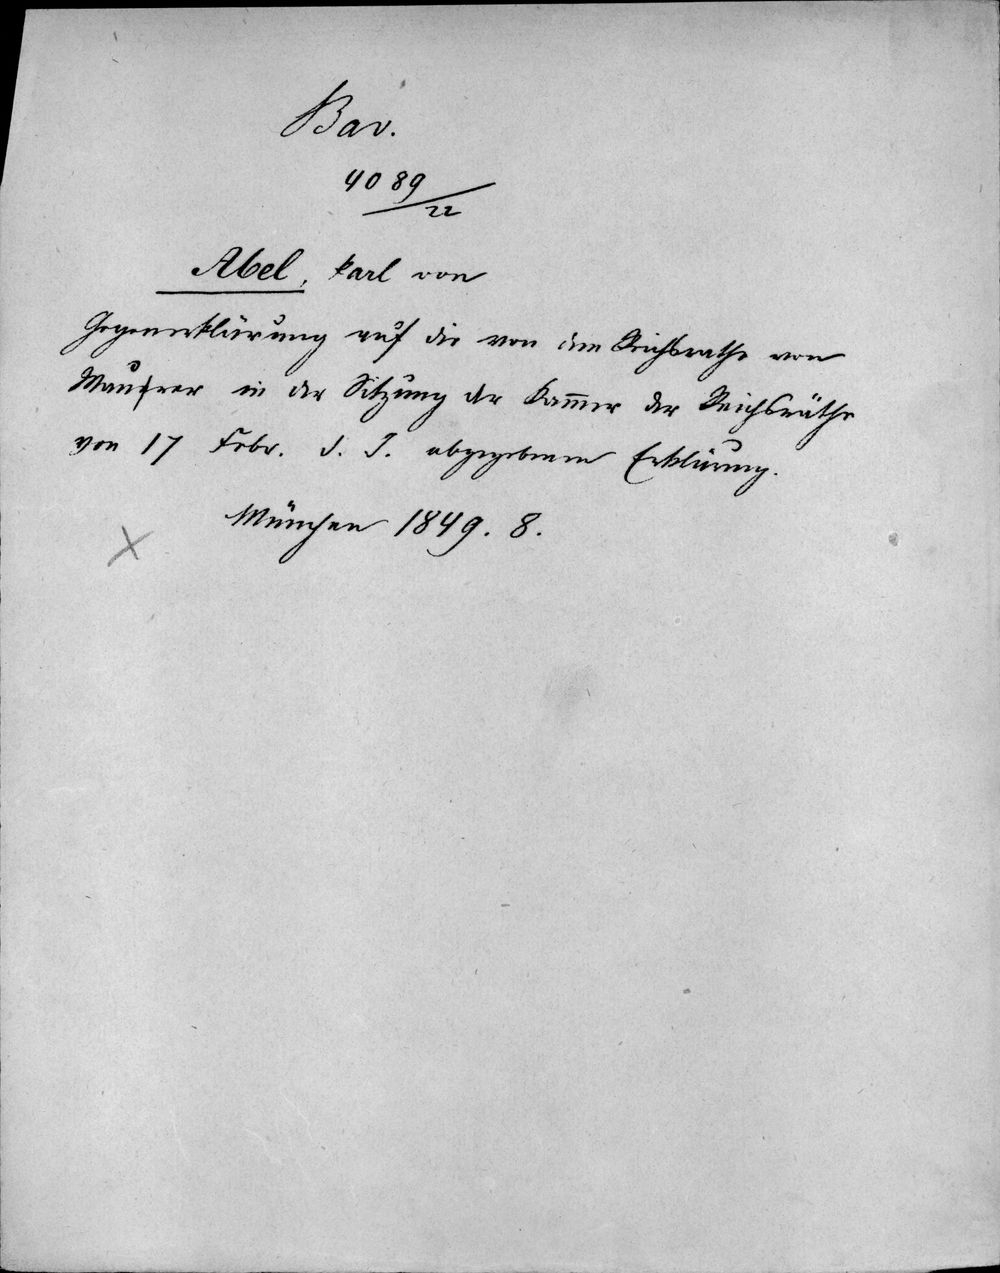 Bav.
4089/22
Abel, Karl von
Gegenerklärung auf die von dem Reichsrathe von
Maurer in der Sitzung der Kam̅er der Reichsräthe
von 17 Febr. d. J. abgegebenen Erklärung.
München 1849. 8.